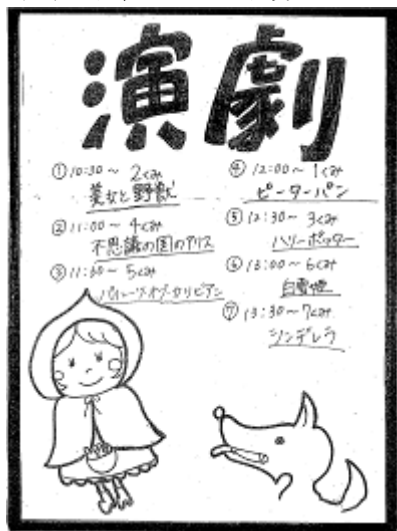 演劇
① 10:30〜 2くみ
美女と野獣
② 11:00〜 4くみ
不思議の国のアリス
③ 11:30〜 5くみ
パイレーツオブカリビアン
④ 12:00〜 1くみ
ピーターパン
⑤ 12:30〜 3くみ
ハリーポッター
⑥ 13:00〜 6くみ
白雪姫
⑦ 13:30〜 7くみ
シンデレラ